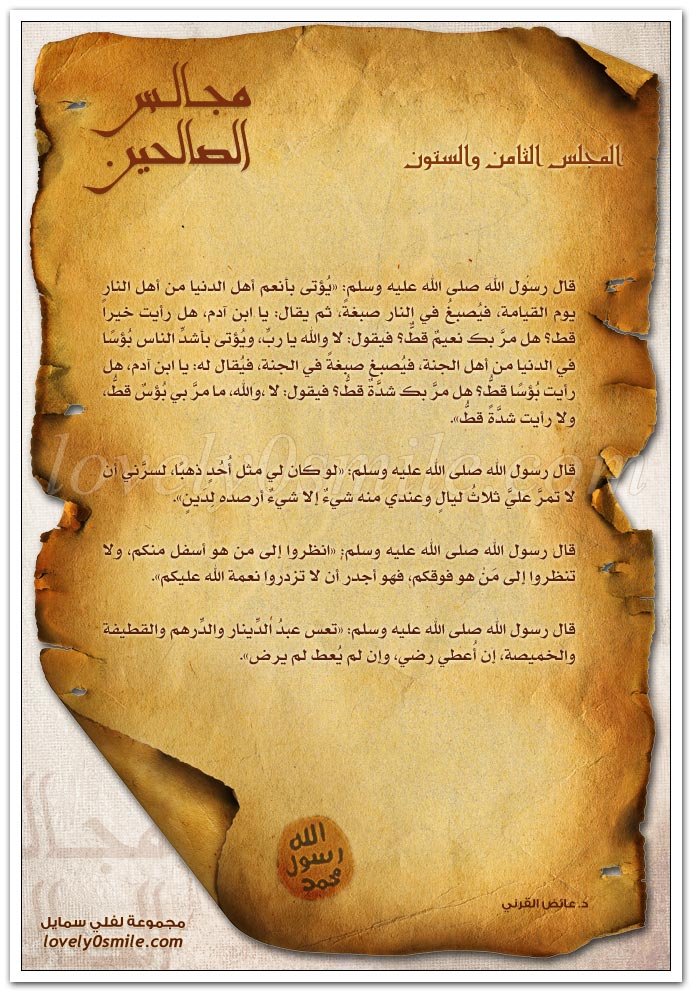 مجالس
الصالحين
المجلس الثامن والستون
قال رسول الله صلى الله عليه وسلم: «يُؤتى بأنعم أهل الدنيا من أهل النار
يوم القيامة، فيُصبغُ في النار صبغةً، ثم يقال: يا ابن آدم، هل رأيت خيرا
قط؟ هل مرَّ بك نعيمٌ قطُّ؟ فيقول: لا والله يا ربِّ، ويُؤتى بأشدِّ الناس بُؤسًا
في الدنيا من أهل الجنة، فيُصبغ صبغةً في الجنة، فيُقال له: يا ابن آدم، هل
رأيت بُؤسًا قطُّ؟ هل مرَّ بك شدَّةٌ قطُّ؟ فيقول: لا ،والله، ما مرَّ بي بُؤسٌ قطُّ،
ولا رأيت شدَّةً قطُّ».
قال رسول الله صلى الله عليه وسلم: «لو كان لي مثل أُحُدٍ ذهبًا، لسرَّني أن
لا تمرَّ عليَّ ثلاثُ ليالٍ وعندي منه شيءٌ إلا شيءٌ أرصده لِدَينٍ».
قال رسول الله صلى الله عليه وسلم: «انظروا إلى من هو أسفل منكم، ولا
تنظروا إلى مَنْ هو فوقكم، فهو أجدر أن لا تزدروا نعمة الله عليكم».
قال رسول الله صلى الله عليه وسلم: «تعس عبدُ الدِّينار والدِّرهم والقطيفة
والخميصة، إن أعطي رضي، وإن لم يُعط لم يرض».
الله
رسول
محمد
د.عائض القرني
مجموعة لفلي سمايل
lovely0smile.com
lovely0smile.com